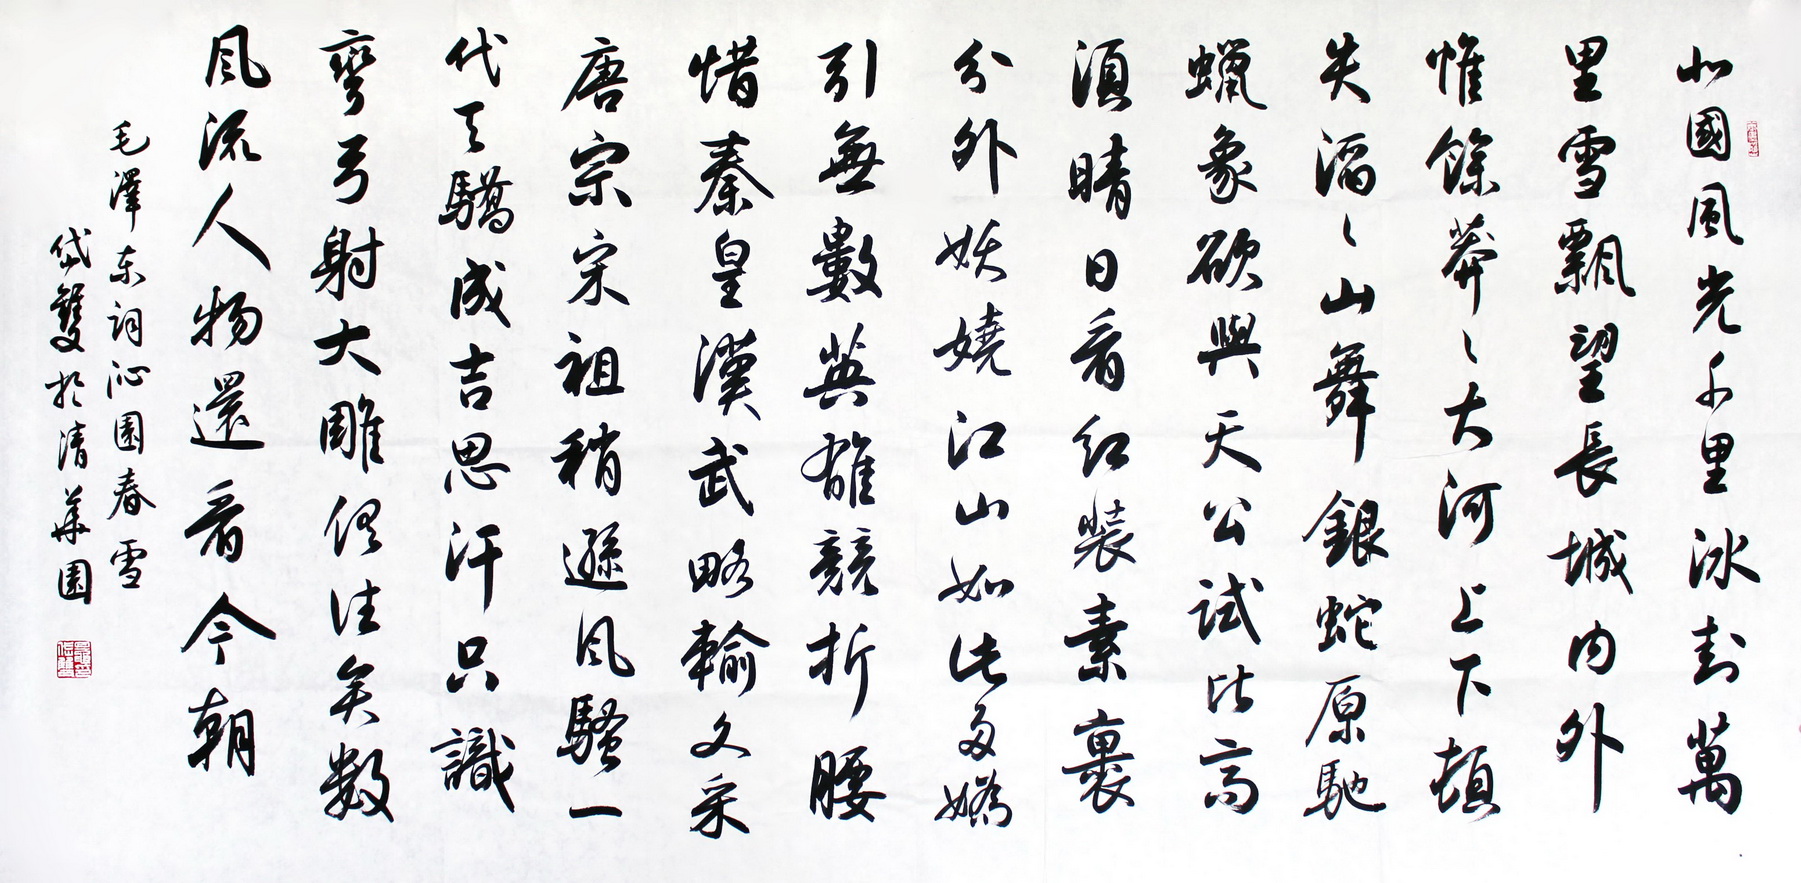 北國風光千里冰封萬
里雪飄望長城內外
惟餘莽〻大河上下頓
失滔〻山舞銀蛇原馳
蠟象欲與天公試比高
須晴日看红裝素裹
分外妖嬈江山如此多嬌
引無數英雄競折腰
惜秦皇漢武略輸文采
唐宗宋祖稍遜風騷一
代天驕成吉思汗只識
彎弓射大雕俱往矣数
風流人物還看今朝
毛澤东词沁園春雪
岱雙於清華園